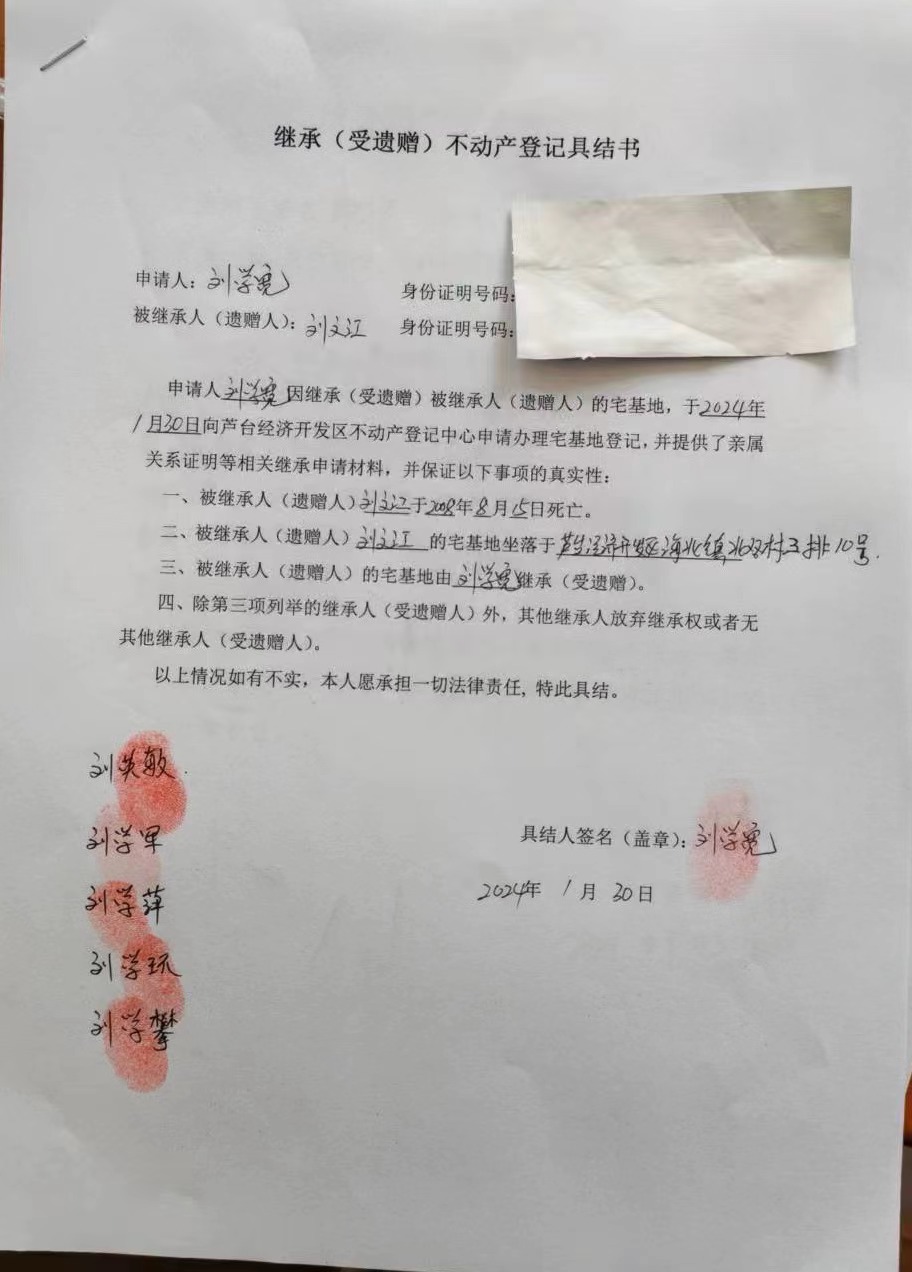 继承（受遗赠）不动产登记具结书
申请人：刘学亮 身份证明号码：
被继承人（遗赠人）：刘文江 身份证明号码：
申请人刘学亮因继承（受遗赠）被继承人（遗赠人）的宅基地，于2024年
1月30日向芦台经济开发区不动产登记中心申请办理宅基地登记，并提供了亲属
关系证明等相关继承申请材料，并保证以下事项的真实性：
一、被继承人（遗赠人）刘文江于2008年8月15日死亡。
二、被继承人（遗赠人）刘文江的宅基地坐落于芦台经济开发区海北镇北村三排10号.
三、被继承人（遗赠人）的宅基地由刘学亮继承（受遗赠）。
四、除第三项列举的继承人（受遗赠人）外，其他继承人放弃继承权或者无
其他继承人（受遗赠人）。
以上情况如有不实，本人愿承担一切法律责任，特此具结。
刘英敏.
刘学军
具结人签名（盖章）：刘学亮
2024年 1月 30日
刘学萍
刘学玩
刘学攀